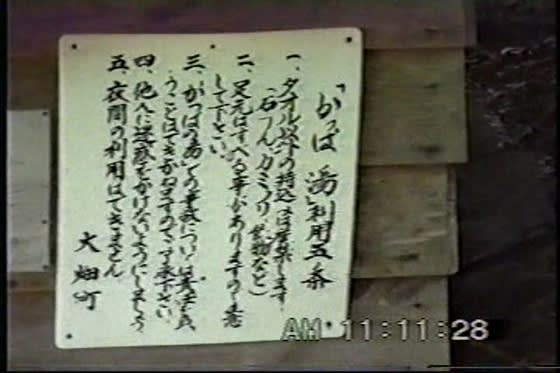 「かっぱの湯」利用五ヶ条
一、タオル以外の持込は厳禁します
(石けん、カミソリ、飲物など)
二、足元はすべる事がありますので注意
して下さい。
三、かっぱの湯での事故については責任を負
うことはできかねますのでご了承下さい。
四、他人に迷惑をかけないようにしましょう
五、夜間の利用はできません
大畑町
AM 11:11:28